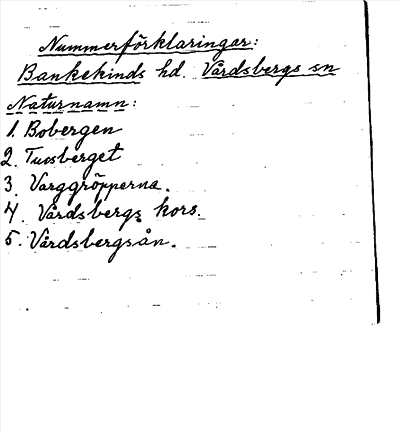 Nummerförklaringar:
Bankekinds hd. Vårdsbergs sn
Naturnamn:
1. Bobergen
2. Tuvsberget
3. Varggröpperna.
4. Vårdsbergs kors.
5. Vårdsbergsån.